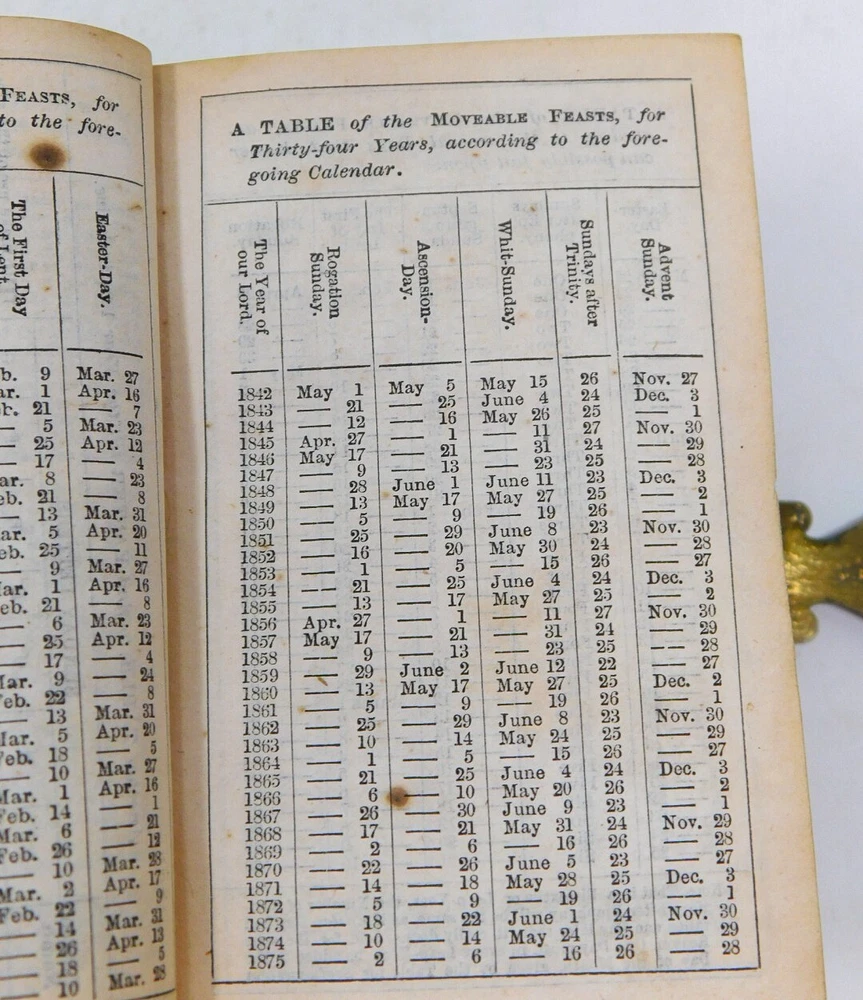 FEASTS, for
to the fore-
The First Day
of Lent
Easter-Day.
b. 9 Mar. 27
ar. 1 Apr. 16
b. 21 — 7
— 5 Mar. 23
— 25 Apr. 12
— 17 — 4
ar. 8 — 23
eb. 21 — 8
— 13 Mar. 31
ar. 5 Apr. 20
eb. 25 — 11
— 9 Mar. 27
ar. 1 Apr. 16
eb. 21 — 8
— 6 Mar. 23
— 25 Apr. 12
— 17 — 4
Mar. 9 — 24
eb. 22 — 8
— 13 Mar. 31
Mar. 5 Apr. 20
Feb. 18 — 5
— 10 Mar. 27
Mar. 1 Apr. 16
Feb. 14 — 1
Mar. 6 — 21
Feb. 26 — 12
— 10 Mar. 28
Mar. 2 Apr. 17
Feb. 22 — 9
— 14 Mar. 31
— 26 Apr. 13
— 18 — 5
— 10 Mar. 28
A TABLE of the MOVEABLE FEASTS, for
Thirty-four Years, according to the fore-
going Calendar.
The Year of
our Lord.
Rogation
Sunday.
Ascension-
Day.
Whit-Sunday.
Sundays after
Trinity.
Advent
Sunday.
1842 May 1 May 5 May 15 26 Nov. 27
1843 — 21 — 25 June 4 24 Dec. 3
1844 — 12 — 16 May 26 25 — 1
1845 Apr. 27 — 1 — 11 27 Nov. 30
1846 May 17 — 21 — 31 24 — 29
1847 — 9 — 13 — 23 25 — 28
1848 — 28 June 1 June 11 23 Dec. 3
1849 — 13 May 17 May 27 25 — 2
1850 — 5 — 9 — 19 26 — 1
1851 — 25 — 29 June 8 23 Nov. 30
1852 — 16 — 20 May 30 24 — 28
1853 — 1 — 5 — 15 26 — 27
1854 — 21 — 25 June 4 24 Dec. 3
1855 — 13 — 17 May 27 25 — 2
1856 Apr. 27 — 1 — 11 27 Nov. 30
1857 May 17 — 21 — 31 24 — 29
1858 — 9 — 13 — 23 25 — 28
1859 — 29 June 2 June 12 22 — 27
1860 — 13 May 17 May 27 25 Dec. 2
1861 — 5 — 9 — 19 26 — 1
1862 — 25 — 29 June 8 23 Nov. 30
1863 — 10 — 14 May 24 25 — 29
1864 — 1 — 5 — 15 26 — 27
1865 — 21 — 25 June 4 24 Dec. 3
1866 — 6 — 10 May 20 26 — 2
1867 — 26 — 30 June 9 23 — 1
1868 — 17 — 21 May 31 24 Nov. 29
1869 — 2 — 6 — 16 26 — 28
1870 — 22 — 26 June 5 23 — 27
1871 — 14 — 18 May 28 25 Dec. 3
1872 — 5 — 9 — 19 26 — 1
1873 — 18 — 22 June 1 24 Nov. 30
1874 — 10 — 14 May 24 25 — 29
1875 — 2 — 6 — 16 26 — 28